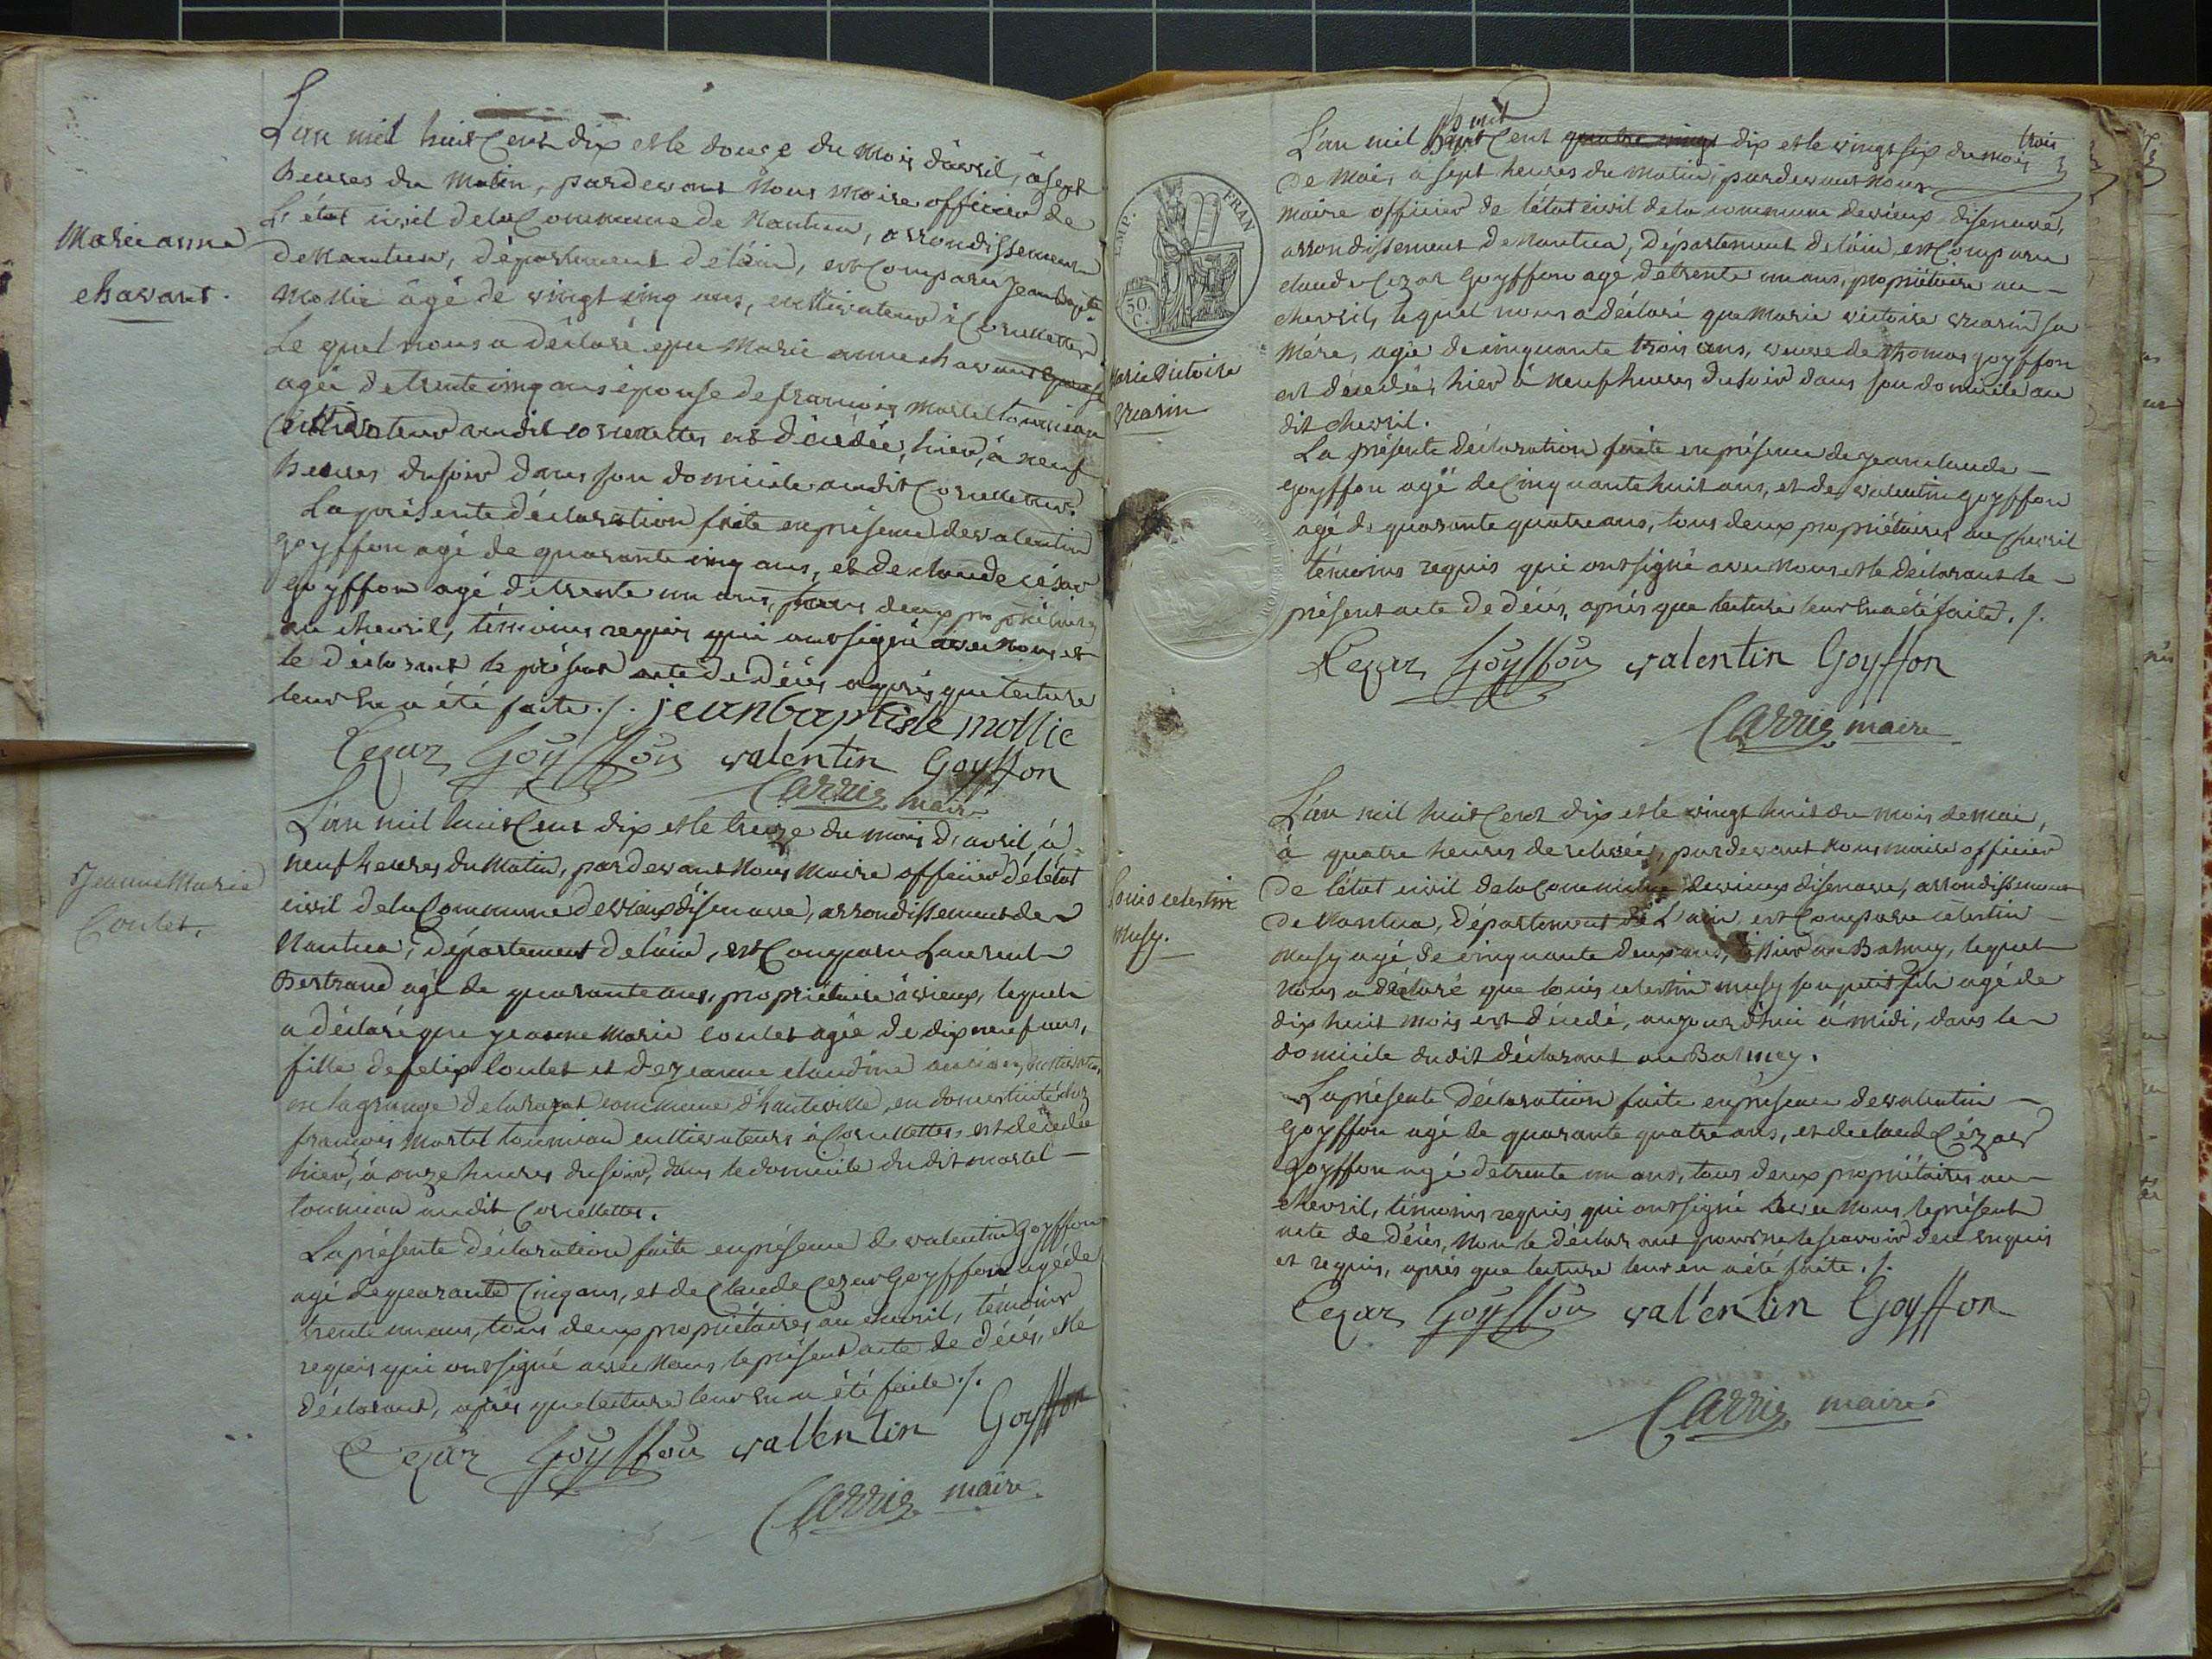 Marie anne
chavant.
L'an mil huit Cent dix et le douze du mois d'avril, à sept
heures du matin, pardevant nous maire officier de
L'état civil de la Commune de Nantua, arrondissement
de Nantua, département de l'ain, est Comparu Jean baptiste
Mollie âgé de vingt cinq ans, cultivateur à Corcelettes
Le quel nous a déclaré que Marie anne chavant
agée de trente cinq ans épouse de francois Martel tournian
Cultivateur audit corcelettes est décédée, hier, à neuf
heures du soir dans son domicile audit Corcelettes.
La présente déclaration faite en présence de valentin
goyffon agé de quarante cinq ans, et de claude césar
goyffon agé de trente un ans, tous deux propriétaires
au chevril, témoins requis qui ont signé avec nous et
le déclarant le présent acte de décès après que lecture
leur en a été faite ./. jean baptiste mollie
Cezar Goÿffon valentin Goyffon
Carrier maire
Jeanne Marie
Coulet.
L'an mil huit Cent dix et le treize du mois d'avril, à
neuf heures du matin, pardevant nous maire officier de létat
civil de la Commune de vieux disenave, arrondissement de
Nantua, département de l'ain, est Comparu Laurent
Bertrand agé de quarante ans, propriétaire à vieux, lequel
a déclaré que jeanne Marie coulet agée de dix neuf ans,
fille de felix Coulet et de jeanne claudine
en la grange commune d'hauteville en domesticité chez
françois Martel tournian cultivateurs à Corcelettes, est décédée
hier, à onze heures du soir, dans le domicile du dit martel
tournian audit Corcelettes.
La présente déclaration faite en présence de valentin goyffon
agé de quarante Cinq ans, et de Claude Cezar Goyffon agé de
trente un ans, tous deux propriétaires au chevril, témoins
requis qui ont signé avec nous le présent acte de décès, et le
déclarant, après que lecture leur en a été faite ./.
Cezar Goÿffon valentin Goyffon
Carrier maire
EMP. FRAN
50.
C.
Marie Victoire
Vuarin
huit
trois
L'an mil Cent quatre vingt dix et le vingt six du mois
de Mai, a sept heures du matin, pardevant nous
maire officier de l'état civil de la commune de vieux disenave,
arrondissement de Nantua, département de l'ain, est Comparu
claude Cezar Goyffon agé de trente un ans, propriétaire au
chevril, lequel nous a déclaré que Marie victoire vuarin sa
Mère, agée de cinquante trois ans, veuve de thomas goyffon
est décédée, hier à neuf heures du soir dans son domicile au
dit chevril.
La présente déclaration faite en présence de jean claude
goyffon agé de Cinquante huit ans, et de valentin goyffon
agé de quarante quatre ans, tous deux propriétaires au chevril
témoins requis qui ont signé avec nous et le déclarant le
présent acte de décès, après que lecture leur en a été faite. /.
Cezar Goÿffon valentin Goyffon
Carrier maire
Louis celestin
Musy.
L'an mil huit Cent dix et le vingt huit du mois de mai,
à quatre heures de relevée, pardevant nous maire officier
de l'état civil de la Commune de vieux disenave, arrondissement
de Nantua, département de L'ain est Comparu celestin
Musy agé de cinquante deux ans, au Balmey, lequel
nous a déclaré que louis celestin musy son petit fils agé de
dix huit mois est décédé, aujourd'hui à midi, dans le
domicile du dit déclarant au Balmey.
La présente déclaration faite en présence de valentin
goyffon agé de quarante quatre ans, et de claude Cézar
goyffon agé de trente un ans, tous deux propriétaires au
chevril, témoins requis qui ont signé avec nous le présent
acte de décès, Non le déclarant pour ne le sçavoir de ce enquis
et requis, après que lecture leur en a été faite. /.
Cezar Goÿffon valentin Goyffon
Carrier maire